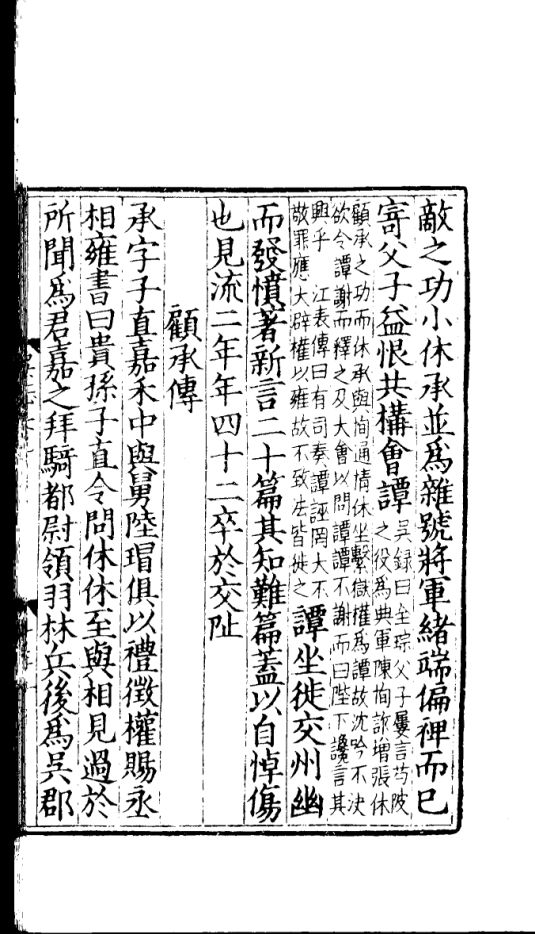 敵之功小休承並爲雜號將軍緒端偏裨而已
寄父子益恨共構會譚
吳錄曰全琮父子屢言芍陂
之役爲典軍陳恂詐增張休
顧承之功而休承與恂通情休坐繫獄權爲譚故沈吟不決
欲令譚謝而釋之及大會以問譚譚不謝而曰陛下讒言其
興乎　江表傳曰有司奏譚誣罔大不
敬罪應大辟權以雍故不致法皆徙之
譚坐徙交州幽
而發憤著新言二十篇其知難篇蓋以自悼傷
也見流二年年四十二卒於交阯
顧承傳
承字子直嘉禾中與舅陸瑁俱以禮徵權賜丞
相雍書曰貴孫子直令問休休至與相見過於
所聞爲君嘉之拜騎都尉領羽林兵後爲吳郡